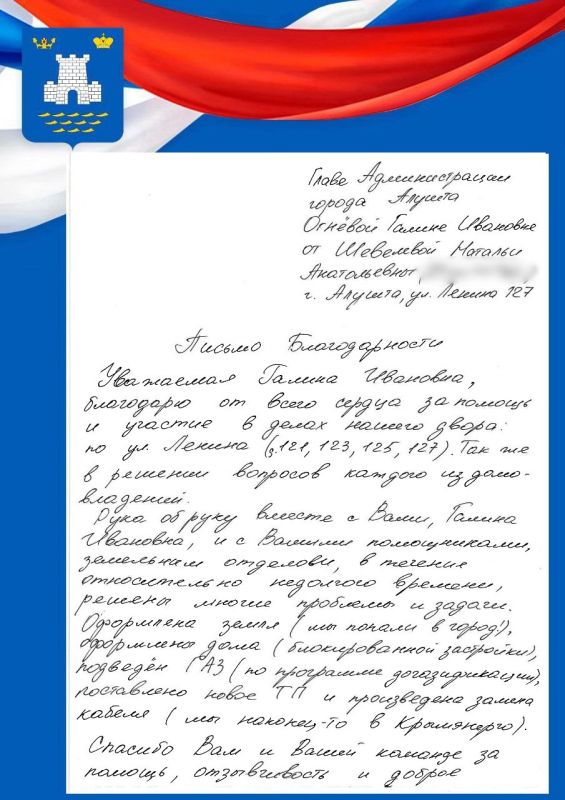 Главе Администрации
города Алушта
Огнёвой Галине Ивановне
от Шевелевой Натальи
Анатольевны,
г. Алушта, ул. Ленина 127
Письмо Благодарности
Уважаемая Галина Ивановна,
благодарю от всего сердца за помощь
и участие в делах нашего двора:
по ул. Ленина (д.121, 123, 125, 127). Так же
в решении вопросов каждого из домо-
владений.
Рука об руку вместе с Вами, Галина
Ивановна, и с Вашими помощниками,
земельным отделом, в течение
относительно недолгого времени,
решены многие проблемы и задачи.
Оформлена земля (мы попали в город!),
оформлены дома (блокированной застройки),
подведён ГАЗ (по программе догазификации),
поставлено новое ТП и произведена замена
кабеля (мы наконец-то в Крымэнерго).
Спасибо Вам и Вашей команде за
помощь, отзывчивость и доброе